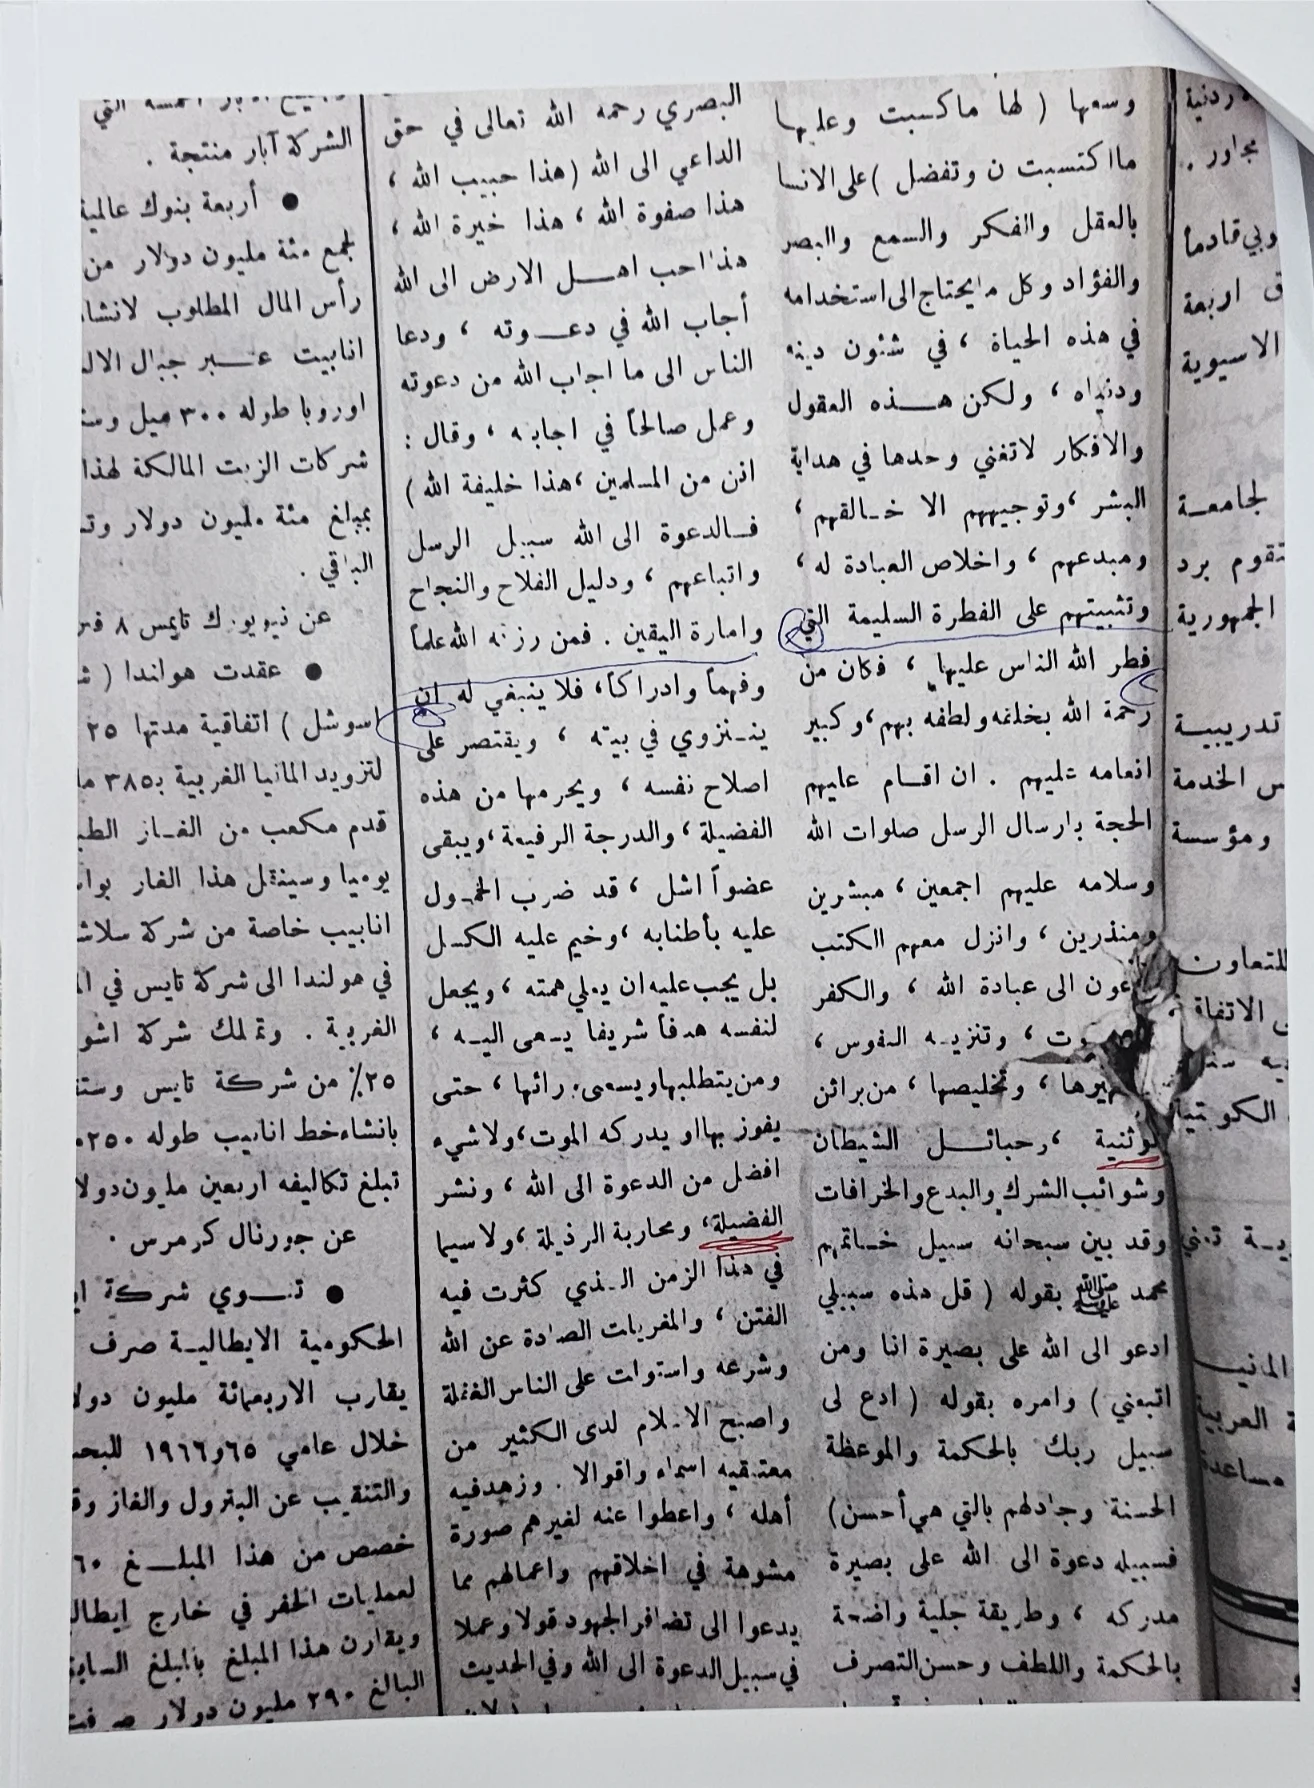 ردنية
مجاور .
وبي قادماً
ق اربعة
الاسيوية
لجامعـة
تقوم برد
الجمهورية
تدريبيـة
س الخدمة
ومؤسسة
للتعاون
ى الاتفاق
يه
الكويتية
يـة تبني
المانيـ
ة العربية
مساعدة
وسعها ( لها ماكسبت وعليها
مااكتسبت ن وتفضل )على الانسا
بالعقل والفكر والسمع والبصر
والفؤاد وكل مايحتاج الى استخدامه
في هذه الحياة ، في شئون دينه
ودنياه ، ولكن هـــذه العقول
والافكار لاتغني وحدها في هداية
البشر ،وتوجيههم الا خـالقهم ،
ومبدعهم ، واخلاص العبادة له ،
وتثبيتهم على الفطرة السليمة التي
فطر الله الناس عليها ، فكان من
رحمة الله بخلقه ولطفه بهم،وكبير
انعامه عليهم . ان اقــام عليهم
الحجة بارسال الرسل صلوات الله
وسلامه عليهم اجمعين ، مبشرين
ومنذرين ، وانزل معهم الكتب
عون الى عبادة الله ، والكفر
وت ، وتنزيـه النفوس ،
هيرها ، وتخليصها ، من براثن
لوثنية ،وحبائــل الشيطان
وشوائب الشرك والبدع والخرافات
وقد بين سبحانه سبيل خـاتمهم
محمد ﷺ بقوله ( قل هذه سبيلي
ادعو الى الله على بصيرة انا ومن
اتبعني ) وامره بقوله ( ادع لى
سبيل ربك بالحكمة والموعظة
الحسنة وجادلهم بالتي هي أحسن )
فسبيله دعوة الى الله على بصيرة
مدركه ، وطريقة جلية واضحة
بالحكمة واللطف وحسن التصرف
البصري رحمه الله تعالى في حق
الداعي الى الله (هذا حبيب الله ،
هذا صفوة الله ، هذا خيرة الله ،
هذا احب اهـــل الارض الى الله
أجاب الله في دعــوته ، ودعا
الناس الى ما اجاب الله من دعوته
وعمل صالحاً في اجابته ، وقال :
انن من المسلمين ،هذا خليفة الله )
فــالدعوة الى الله سبيل الرسل
واتباعهم ، ودليل الفلاح والنجاح
وامارة اليقين . فمن رزقه الله علماً
وفهماً وادراكاً، فلا ينبغي له ان
ينـنزوي في بيته ، ويقتصر على
اصلاح نفسه ، ويحرمها من هذه
الفضيلة ، والدرجة الرفيعة ،ويبقى
عضواً اشل ، قد ضرب الخمـول
عليه بأطنابه ،وخيم عليه الكسل
بل يجب عليه ان يعلي همته ، ويجعل
لنفسه هدفاً شريفا يسعى اليـه ،
ومن يتطلبها ويسعى ورائها ، حتى
يفوز بها او يدركه الموت ،ولاشيء
افضل من الدعوة الى الله ، ونشر
الفضيلة، ومحاربة الرذيلة ،ولاسيما
في هذا الزمن الـذي كثرت فيه
الفتن ، والمغريات الصادة عن الله
وشرعه واستوات على الناس الغفلة
واصبح الاسلام لدى الكثير من
معتنقيه اسماء واقوالا . وزهد فيه
أهله ، واعطوا عنه لغيرهم صورة
مشوهة في اخلاقهم واعمالهم مما
يدعوا الى تضافر الجهود قولا وعملا
في سبيل الدعوة الى الله وفي الحديث
الشركة آبار منتجة .
● أربعة بنوك عالمية
لجمع مئة مليون دولار من
رأس المال المطلوب لانشا
انابيت عــبر جبال الالـ
اوروبا طوله ٣٠٠ ميل وستـ
شركات الزيت المالكة لهذا
بمبلغ مئة مليون دولار وتـ
الباقي .
عن نيويورك تايمس ٨ فبر
● عقدت هولندا ( شـ
اسوشل ) اتفاقية مدتها ٢٥
لتزويد المانيا الغربية بـ٣٨٥ مـ
قدم مكعب من الغــاز الطبـ
يوميا وسينقل هذا الغاز بواسـ
انابيب خاصة من شركة سلاشـ
في هولندا الى شركة تايس في الـ
الغربية . وتملك شركة اشو
٢٥٪ من شركة تايس وستقـ
بانشاء خط انابيب طوله ٢٥٠
تبلغ تكاليفه اربعين مليون دولا
عن جورنال كرمرس .
● تنـــوي شركة ايـ
الحكومية الايطاليـة صرف
يقارب الاربعمائة مليون دولا
خلال عامي ٦٥و١٩٦٦ للبحـ
والتنقيب عن البترول والغاز وقـ
خصص من هذا المبلــغ ٦٠
لعمليات الحفر في خارج ايطالـ
ويقارن هذا المبلغ بالمبلغ السابق
البالغ ٢٩٠ مليون دولار صرفت